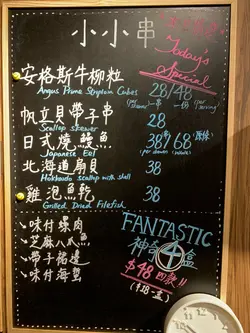 小小串
Today's
Special
安格斯牛柳粒 28/48
Angus Prime Striploin Cubes
帆立貝帶子串 28
Scallop skewer
日式燒鰻魚 38/68
Japanese Eel
北海道扇貝 38
Hokkaido scallop with shell
雞泡魚乾 38
Grilled Dried Filefish
味付螺肉
芝麻八爪魚
帶子裙邊
味付海蜇
FANTASTIC
神奇 盒
$48 四款!!